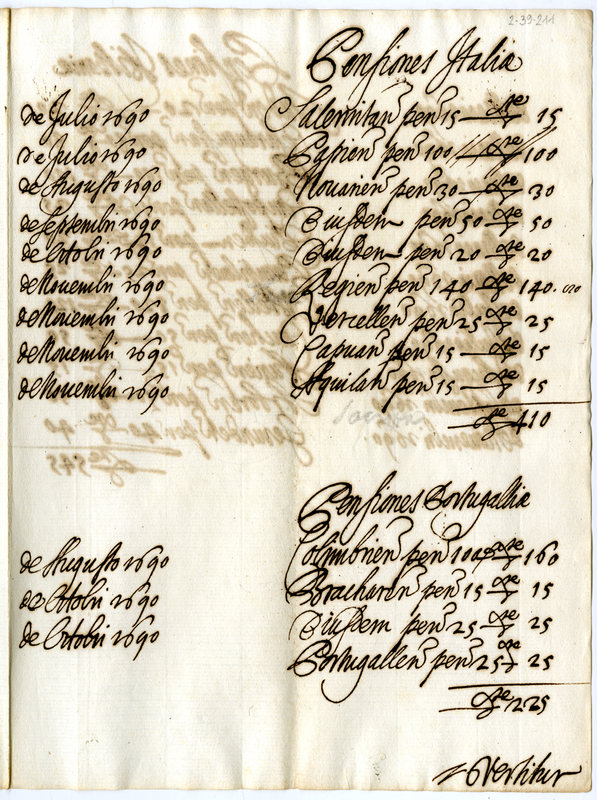 2-39-211
Pensiones Italia
de Julio 1690 Salernitan pen 15 15
de Julio 1690 pen 100 100
de Augusto 1690 Nouarien pen 30 30
de Septembri 1690 Eiusdem pen 50 50
de Octobri 1690 Eiusdem pen 20 20
de Nouembri 1690 Regien pen 140 140
de Nouembri 1690 Vercellen pen 25 25
de Nouembri 1690 Capuan pen 15 15
de Nouembri 1690 Aquilan pen 15 15
410
Pensiones Portugallia
de Augusto 1690 Colimbrien pen 160
de Octobri 1690 Bracharen pen 15 15
de Octobri 1690 Eiusdem pen 25 25
Portugallen pen 25 25
225
Vertitur